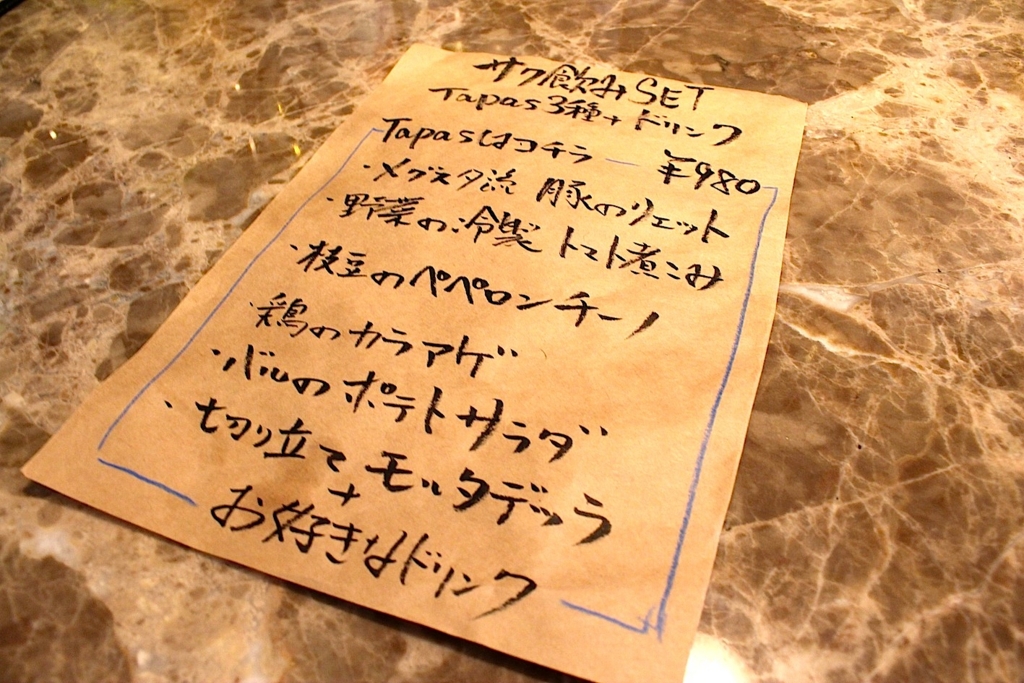 サク飲みSET
Tapas3種+ドリンク
Tapasはコチラ ― ¥980
・メグスタ流 豚のリエット
・野菜の冷製 トマト煮こみ
・枝豆のペペロンチーノ
・鶏のカラアゲ
・バルのポテトサラダ
・切り立てモルタデッラ
+
お好きなドリンク